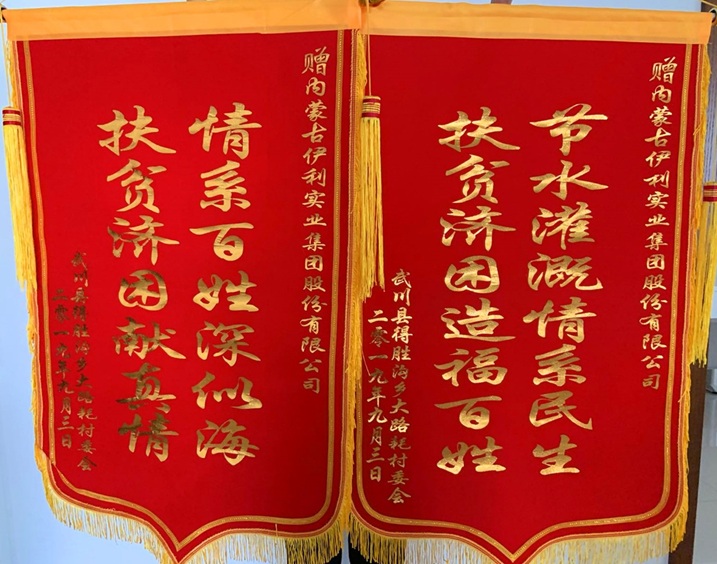 赠内蒙古伊利实业集团股份有限公司
情系百姓深似海
扶贫济困献真情
武川县得胜沟乡大路耗村委会
二零一六年九月三日
赠内蒙古伊利实业集团股份有限公司
节水灌溉情系民生
扶贫济困造福百姓
武川县得胜沟乡大路耗村委会
二零一九年九月三日